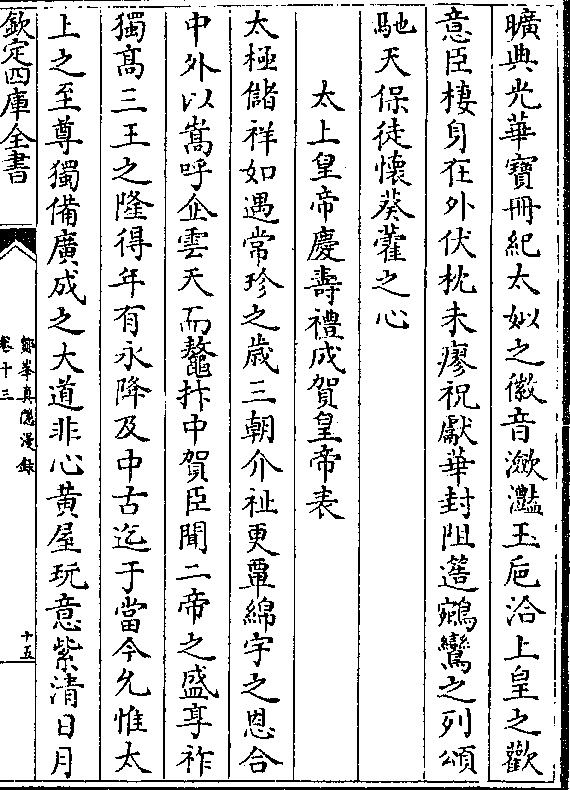 曠典光華寶冊紀太姒之徽音瀲灩玉巵洽上皇之歡
意臣棲身在外伏枕未廖祝獻華封阻簉鵷鸞之列頌
馳天保徒懷葵藿之心
太上皇帝慶壽禮成賀皇帝表
太極儲祥如遇常珍之歲三朝介祉更覃綿宇之恩合
中外以嵩呼企雲天而鼇抃中賀臣聞二帝之盛享祚
獨高三王之隆得年有永降及中古迄于當今允惟太
上之至尊獨備廣成之大道非心黄屋玩意紫清日月
欽定四庫全書
鄮峯真隠漫錄
卷十三
十五